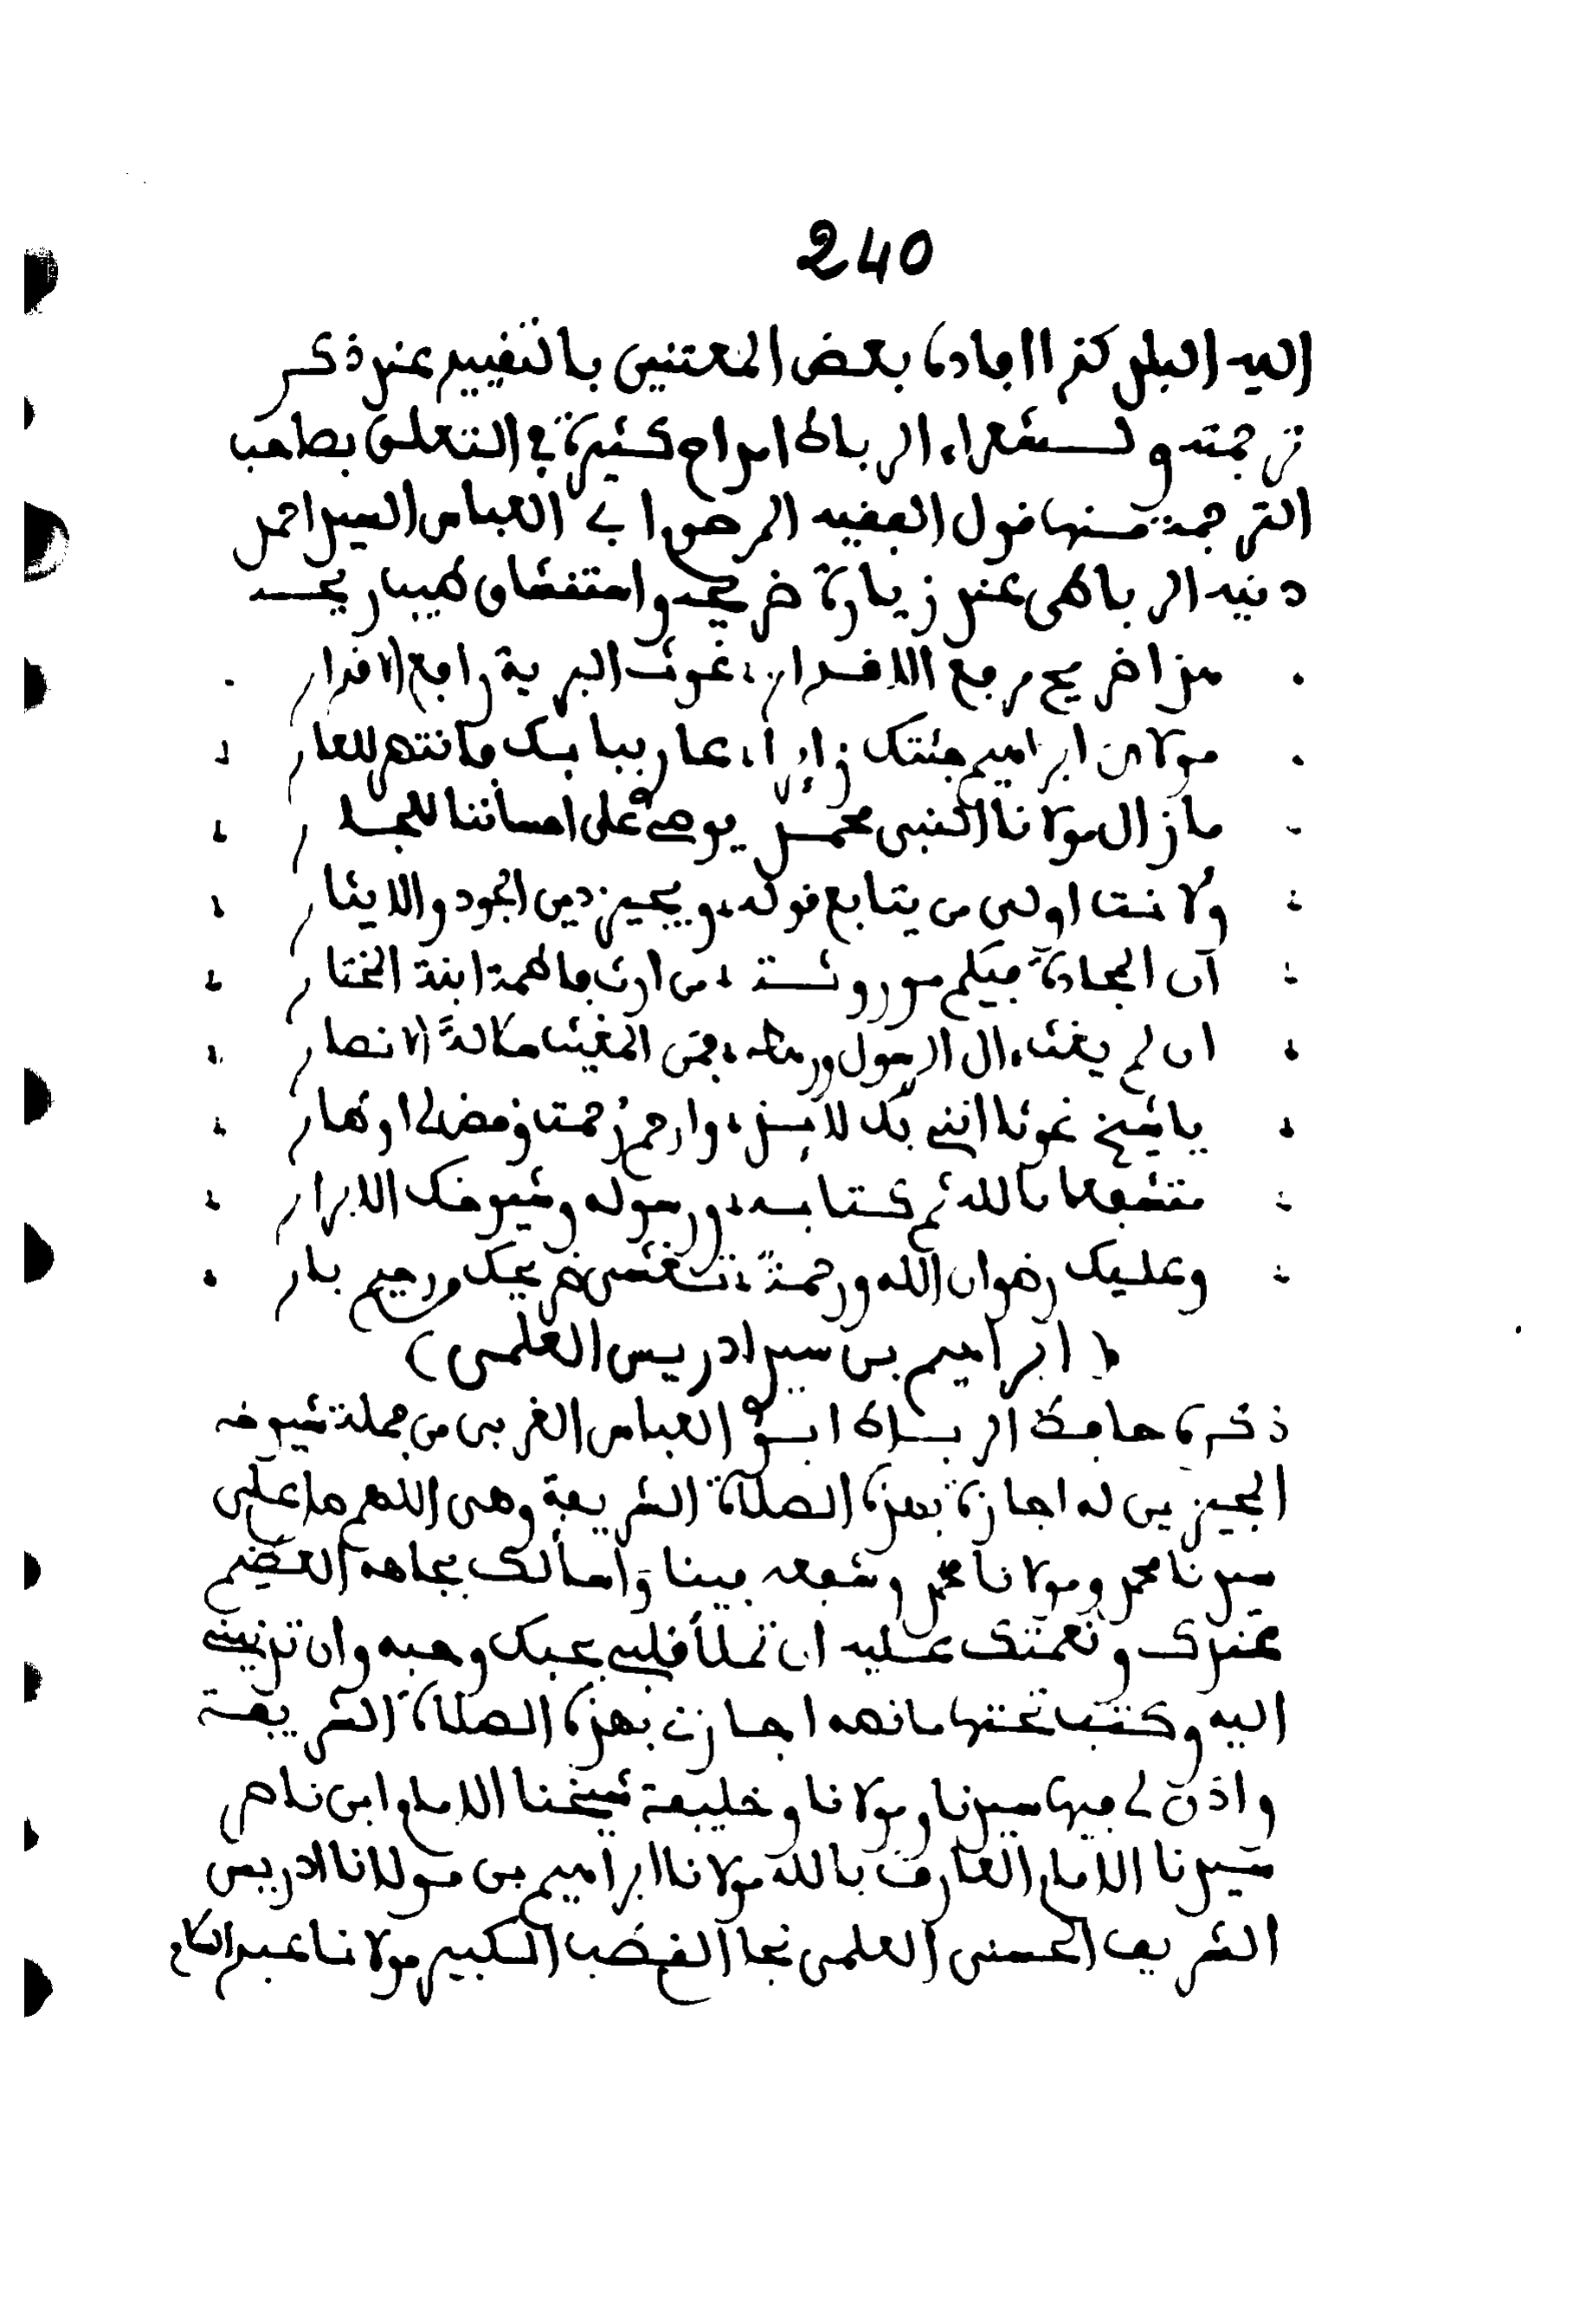 240
اليه البلد كذا افاده بعض المعتنين بالتقييد عند ذكر
ترجمته ولشعراء الرباط امداح كثيرة في التعلق بصاحب
الترجمة منها قول الفقيه المرحوم ابي العباس السيد احمد
دنيه الرباطي عند زيارة ضريحه واستنشاق طيب ريحه
هذا ضريح مرفع الاقدار، غوث البرية رافع الاقدار
مولاي ابراهيم جئتك زائرا، عار ببابك فانتهر للعار
مازال مولانا النبي محمد يوصي على احساننا للجار
ولانت اولى من يتابع قوله، ويجيز دين الجود والايثار
ان الجادة فيكم موروثة، من ارث فاطمة ابنة المختار
ان لم يغث ءال الرسول ورهطه، فمن المغيث سلالة الانصار
ياشيخ غوثا انني بك لائذ، وارحم رحمت وفض لي اوطار
متشفعا بالله ثم كتابه، ورسوله وشيوخك الابرار
وعليك رضوان الله ورحمة، تغشى ضريحك ورحيم بار
(ابراهيم بن سيد ادريس العلمي)
ذكره حافظ الرباط ابو العباس الغربي من جملة شيوخه
المجيزين له اجازة بهذه الصلاة الشريفة وهي اللهم صل على
سيدنا محمد ومولانا محمد وشفعه فينا واسألك بجاهه العظيم
عندك ونعمتك عليه ان تملأ قلبي بحبك وحبه وان تزينني
اليه وكتب تحتها مانصه اجازني بهذه الصلاة الشريفة
واذن لي فيها سيدنا ومولانا وخليفة شيخنا الامام ابن ناصر
سيدنا الامام العارف بالله مولانا ابراهيم بن مولانا ادريس
الشريف الحسني العلمي نجل القطب الكبير مولانا عبد السلام